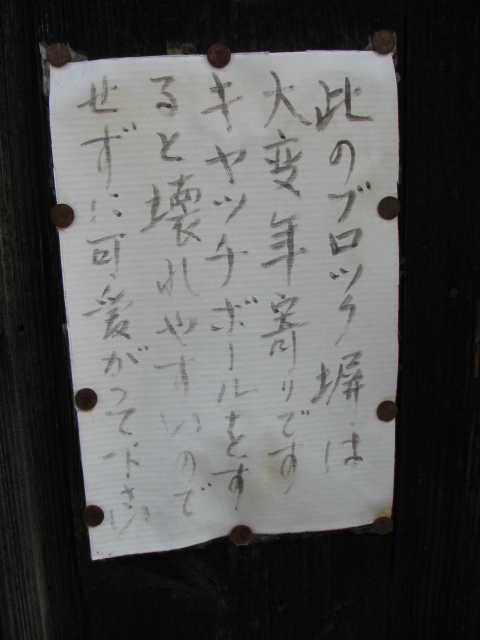 此のブロック塀は
大変年寄りです
キャッチボールをす
ると壊れやすいので
せずに可愛がって下さい